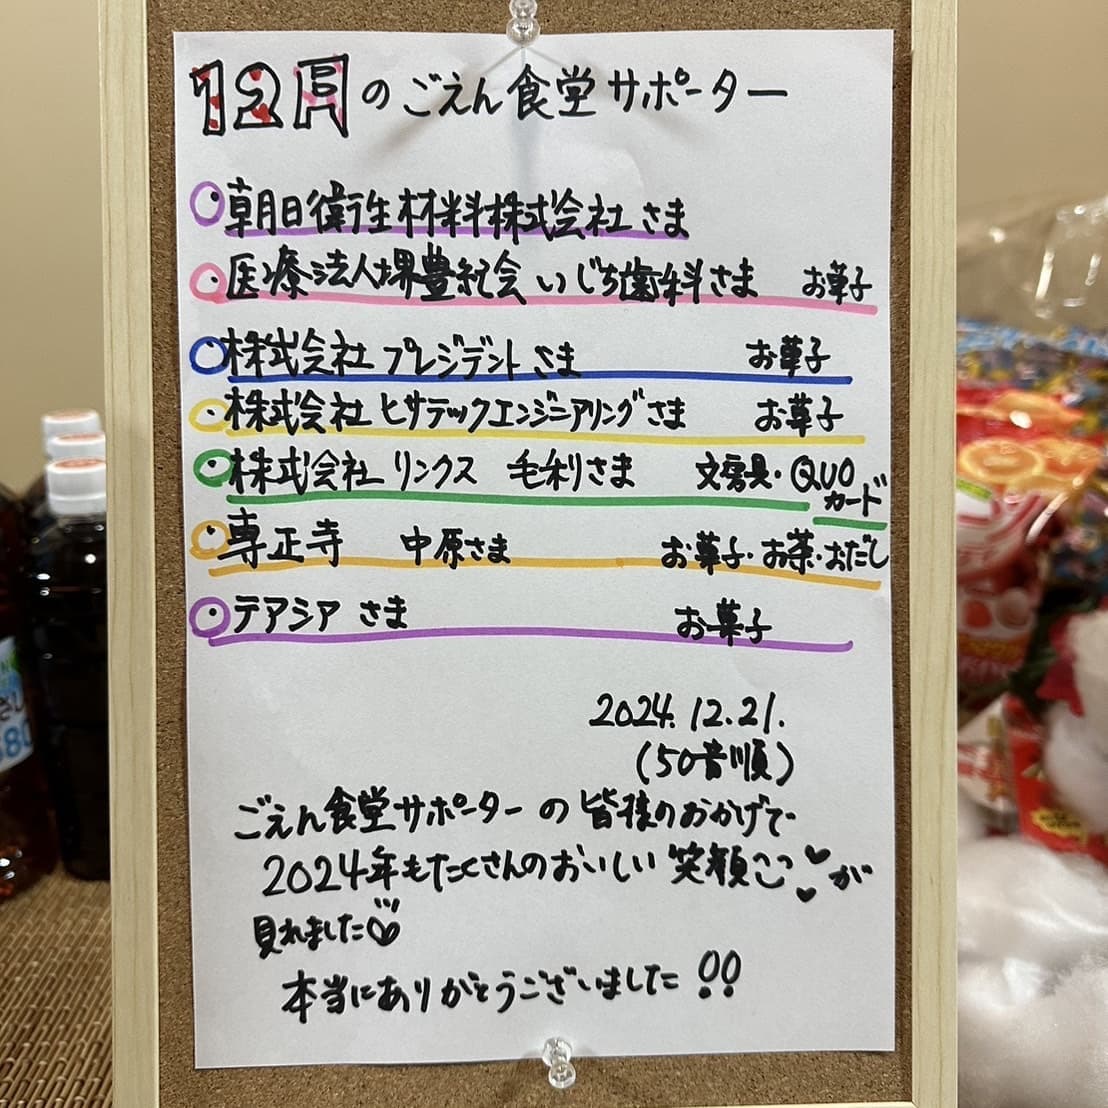 12月のごえん食堂サポーター
朝日衛生材料株式会社さま
医療法人堺豊紀会 いじち歯科さま お菓子
株式会社プレジデントさま お菓子
株式会社ヒサテックエンジニアリングさま お菓子
株式会社リンクス 毛利さま 文房具・QUO
カード
専正寺 中原さま お菓子・お茶・おだし
テアシアさま お菓子
2024.12.21.
(50音順)
ごえん食堂サポーターの皆様のおかげで
2024年もたくさんのおいしい笑顔が
見れました
本当にありがとうございました!!